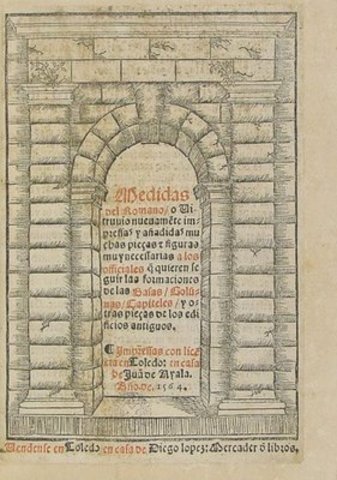 Medidas
del Romano / o Vi-
truuio nueuamẽte im-
pressas y añadidas mu
chas pieças ⁊ figuras
muy necessarias a los
officiales q̃ quieren se
guir las formaciones
de las Basas / Colũ-
nas / Capiteles / y o-
tras pieças de los edi
ficios antiguos.
¶ Impressas con licẽ
cia en Toledo: en casa
de Juã de Ayala.
Año. de. 1564.
Vendense en Toledo en casa de Diego lopez: Mercader õ libros.